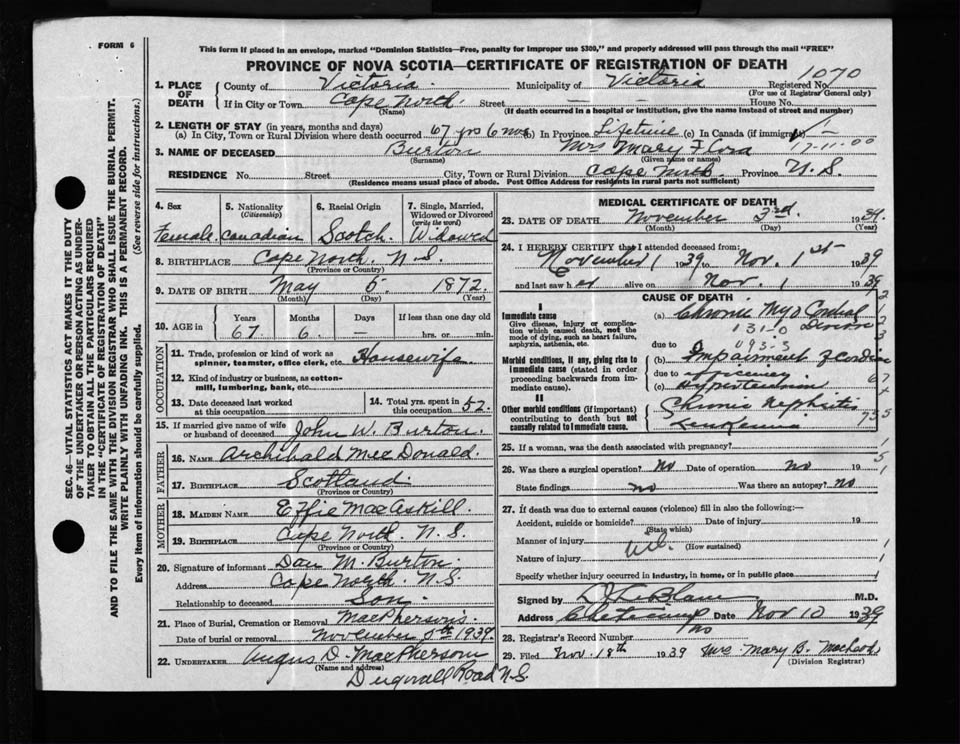 FORM 6
This form if placed in an envelope, marked "Dominion Statistics—Free, penalty for improper use $300," and properly addressed will pass through the mail "FREE"
PROVINCE OF NOVA SCOTIA—CERTIFICATE OF REGISTRATION OF DEATH
1070
1. PLACE OF DEATH County of Victoria Municipality of Victoria Registered No.
(For use of Registrar General only)
If in City or Town Cape North. Street — — House No.
(Name) (If death occurred in a hospital or institution, give the name instead of street and number)
2. LENGTH OF STAY (in years, months and days)
(a) In City, Town or Rural Division where death occurred 67 yrs 6 mos (b) In Province Lifetime (c) In Canada (if immigrant) —
3. NAME OF DECEASED Burton Mrs Mary Flora 17-11-00
(Surname) (Given name or names)
RESIDENCE No. Street City, Town or Rural Division Cape North. Province N. S.
(Residence means usual place of abode. Post Office Address for residents in rural parts not sufficient)
4. Sex 5. Nationality (Citizenship) 6. Racial Origin 7. Single, Married, Widowed or Divorced (write the word)
Female. Canadian Scotch. Widowed
8. BIRTHPLACE Cape North. N.S.
(Province or Country)
9. DATE OF BIRTH May 5 1872.
(Month) (Day) (Year)
10. AGE in Years Months Days If less than one day old
67. 6 — hrs. or min.
OCCUPATION
11. Trade, profession or kind of work as spinner, teamster, office clerk, etc. Housewife
12. Kind of industry or business, as cotton-mill, lumbering, bank, etc.
13. Date deceased last worked at this occupation 14. Total yrs. spent in this occupation 52.
15. If married give name of wife or husband of deceased John W. Burton.
FATHER
16. NAME Archibald MacDonald.
17. BIRTHPLACE Scotland.
(Province or Country)
MOTHER
18. MAIDEN NAME Effie MacAskill.
19. BIRTHPLACE Cape North. N.S.
(Province or Country)
20. Signature of informant Dan M. Burton.
Address Cape North. N.S.
Relationship to deceased Son.
21. Place of Burial, Cremation or Removal MacPherson's.
Date of burial or removal November 5th 1939.
22. UNDERTAKER Angus D. MacPherson
(Name and address)
Road N.S.
MEDICAL CERTIFICATE OF DEATH
23. DATE OF DEATH November 3rd. 1939.
(Month) (Day) (Year)
24. I HEREBY CERTIFY that I attended deceased from:
November 1 1939 to Nov. 1st 1939
and last saw her alive on Nov. 1 1939
CAUSE OF DEATH
I
Immediate cause
Give disease, injury or complication which caused death, not the mode of dying, such as heart failure, asphyxia, asthenia, etc.
(a) Chronic Myocardial
131-0
due to
093-3
Morbid conditions, if any, giving rise to immediate cause (stated in order proceeding backwards from immediate cause).
(b) Impairment of Cardiac
due to efficiency
(c) Hypertension
II
Other morbid conditions (if important) contributing to death but not causally related to immediate cause.
Chronic Nephritis
25. If a woman, was the death associated with pregnancy?
26. Was there a surgical operation? No Date of operation no 19
State findings no Was there an autopsy? No
27. If death was due to external causes (violence) fill in also the following:—
Accident, suicide or homicide? Date of injury 19
(State which)
Manner of injury
(How sustained)
Nature of injury
Specify whether injury occurred in industry, in home, or in public place
Signed by M.D.
Address Cheticamp Date Nov 10 1939
28. Registrar's Record Number
29. Filed Nov. 18th 1939 Mrs. Mary B. MacLeod
(Division Registrar)
SEC. 46—VITAL STATISTICS ACT MAKES IT THE DUTY
OF THE UNDERTAKER OR PERSON ACTING AS UNDER-
TAKER TO OBTAIN ALL THE PARTICULARS REQUIRED
IN THE "CERTIFICATE OF REGISTRATION OF DEATH"
AND TO FILE THE SAME WITH THE DIVISION REGISTRAR WHO SHALL ISSUE THE BURIAL PERMIT.
WRITE PLAINLY WITH UNFADING INK. THIS IS A PERMANENT RECORD.
Every item of information should be carefully supplied. (See reverse side for instructions.)